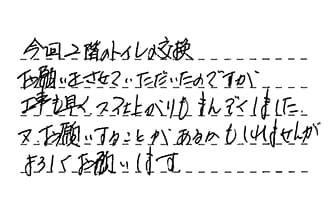 今回2階のトイレの交換
お願いをさせていただいたのですが
工事も早く 仕上がりもまんぞくしました.
又お願いすることがあるかもしれませんが
よろしくお願いします